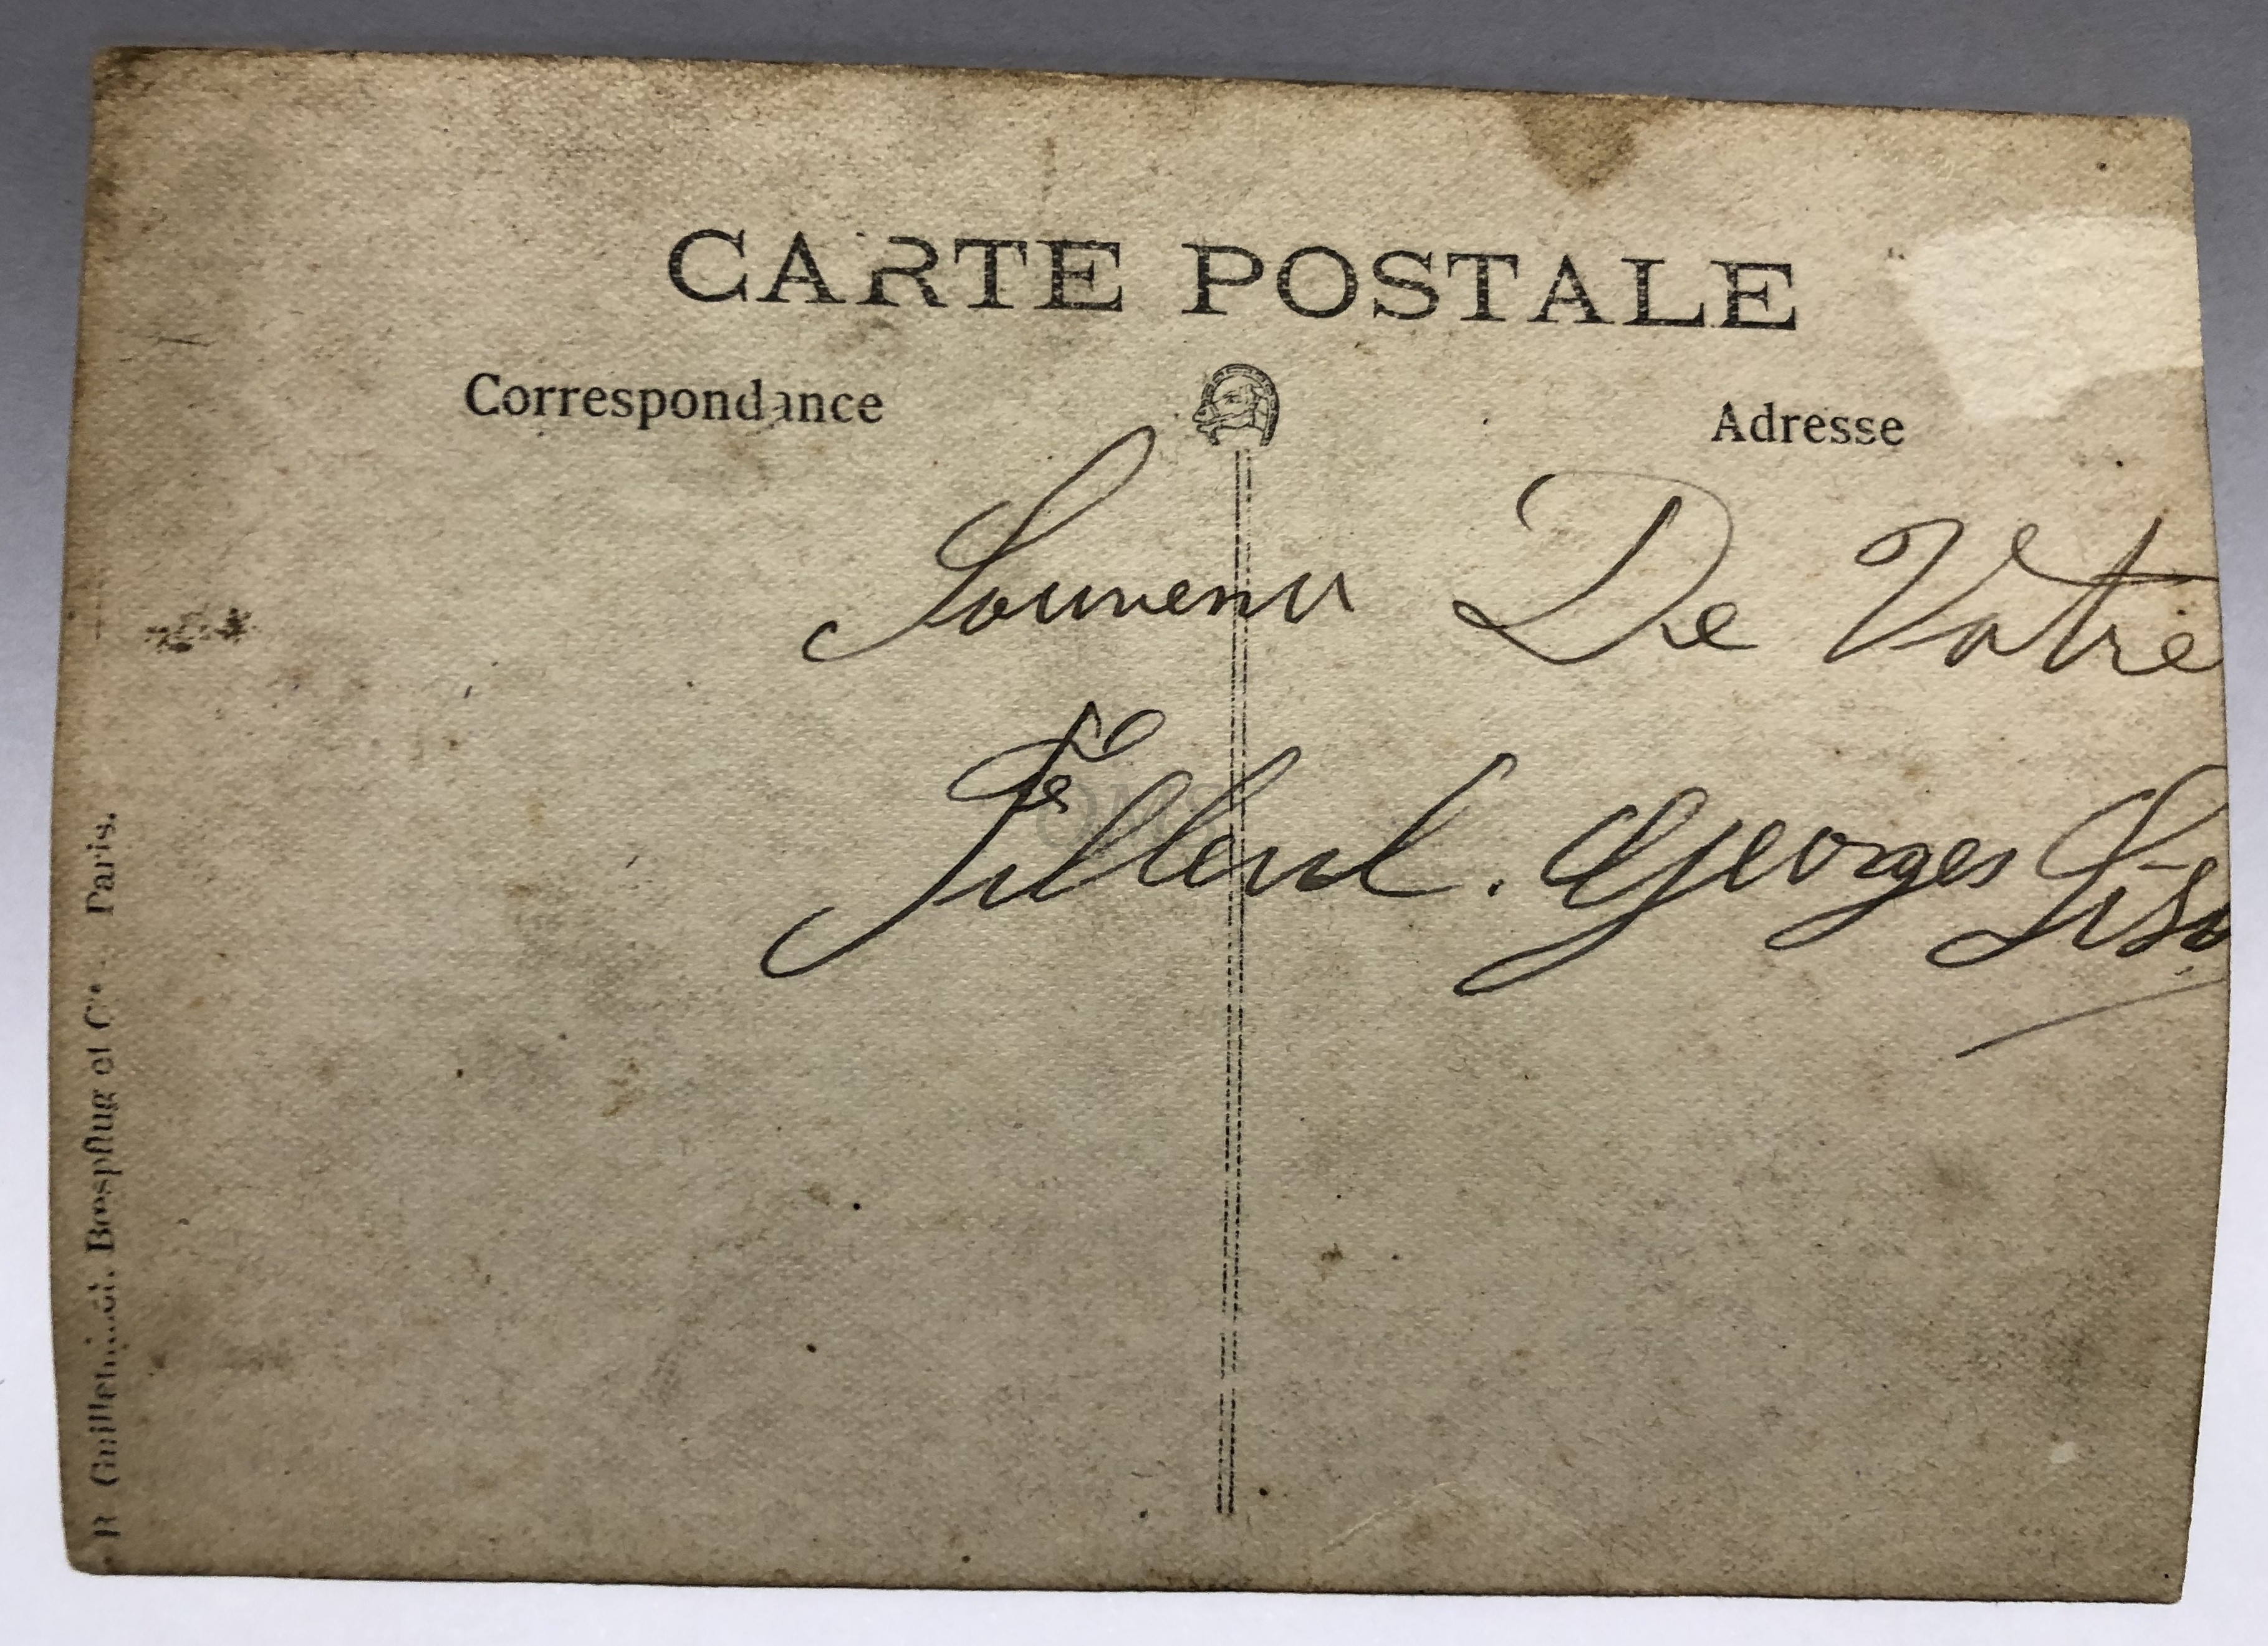 CARTE POSTALE
Correspondance
Adresse
Souvenir De Votre
Filleul. Georges
R. Guilleminot, Bœspflug et Cie - Paris.